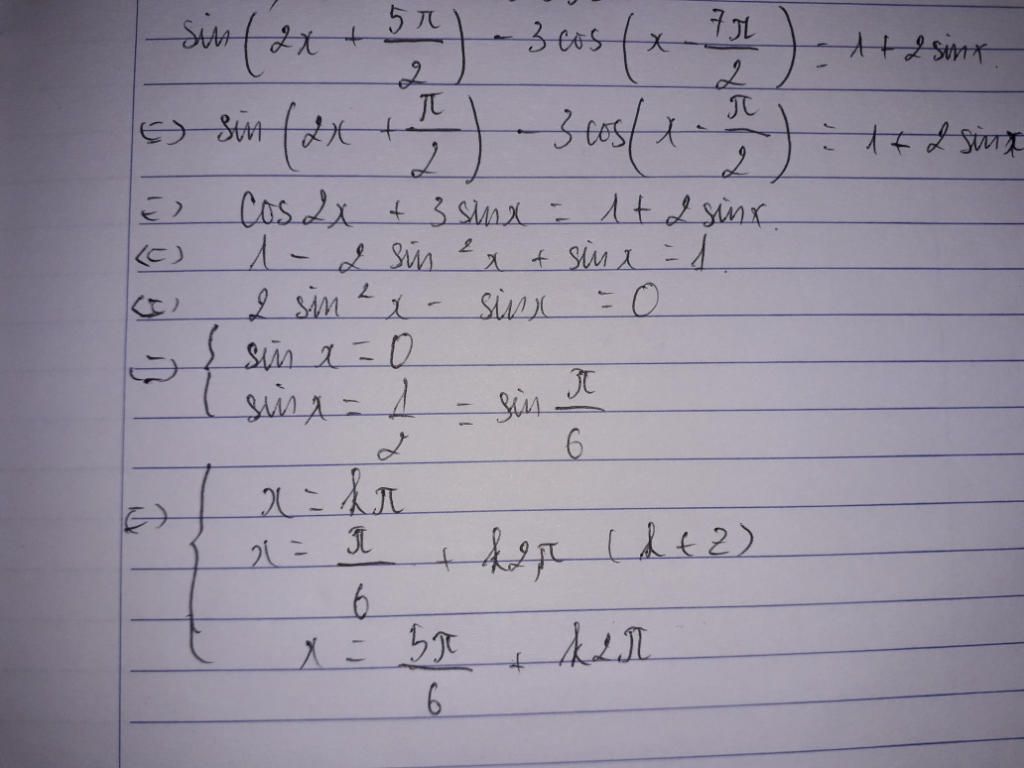 sin(2x + 5π/2) - 3cos(x - 7π/2) = 1 + 2 sinx.
<=> sin(2x + π/2) - 3cos(x - π/2) = 1 + 2 sinx
<=> cos2x + 3 sinx = 1 + 2 sinx.
<=> 1 - 2 sin²x + sinx = 1.
<=> 2 sin²x - sinx = 0
<=> { sin x = 0
sinx = 1/2 = sin π/6
<=> { x = kπ
x = π/6 + k2π (k ∈ Z)
x = 5π/6 + k2π